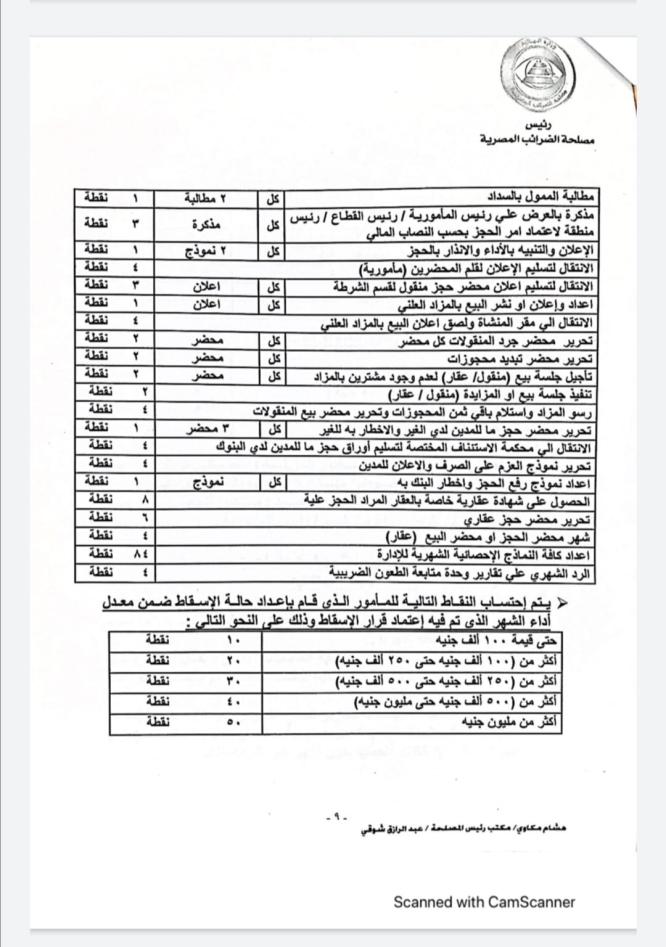 رئيس
مصلحة الضرائب المصرية
مطالبة الممول بالسداد كل ٢ مطالبة ١ نقطة
مذكرة بالعرض علي رئيس المأمورية / رئيس القطاع / رئيس
منطقة لاعتماد امر الحجز بحسب النصاب المالي كل مذكرة ٣ نقطة
الإعلان والتنبيه بالأداء والانذار بالحجز كل ٢ نموذج ١ نقطة
الانتقال لتسليم الإعلان لقلم المحضرين (مأمورية) ٤ نقطة
الانتقال لتسليم اعلان محضر حجز منقول لقسم الشرطة كل اعلان ٣ نقطة
اعداد وإعلان او نشر البيع بالمزاد العلني كل اعلان ١ نقطة
الانتقال الي مقر المنشاة ولصق اعلان البيع بالمزاد العلني ٤ نقطة
تحرير محضر جرد المنقولات كل محضر كل محضر ٢ نقطة
تحرير محضر تبديد محجوزات كل محضر ٢ نقطة
تأجيل جلسة بيع (منقول/ عقار) لعدم وجود مشترين بالمزاد كل محضر ٢ نقطة
تنفيذ جلسة بيع او المزايدة (منقول / عقار) ٢ نقطة
رسو المزاد واستلام باقي ثمن المحجوزات وتحرير محضر بيع المنقولات ٤ نقطة
تحرير محضر حجز ما للمدين لدي الغير والاخطار به للغير كل ٣ محضر ١ نقطة
الانتقال الي محكمة الاستئناف المختصة لتسليم أوراق حجز ما للمدين لدي البنوك ٤ نقطة
تحرير نموذج العزم على الصرف والاعلان للمدين ٤ نقطة
اعداد نموذج رفع الحجز واخطار البنك به كل نموذج ١ نقطة
الحصول على شهادة عقارية خاصة بالعقار المراد الحجز علية ٨ نقطة
تحرير محضر حجز عقاري ٦ نقطة
شهر محضر الحجز او محضر البيع (عقار) ٤ نقطة
اعداد كافة النماذج الإحصائية الشهرية للإدارة ٨٤ نقطة
الرد الشهري علي تقارير وحدة متابعة الطعون الضريبية ٤ نقطة
➢ يتم إحتساب النقاط التالية للمأمور الذي قام بإعداد حالة الإسقاط ضمن معدل
أداء الشهر الذي تم فيه إعتماد قرار الإسقاط وذلك على النحو التالي :
حتى قيمة ١٠٠ ألف جنيه ١٠ نقطة
أكثر من (١٠٠ ألف جنيه حتى ٢٥٠ ألف جنيه) ٢٠ نقطة
أكثر من (٢٥٠ ألف جنيه حتى ٥٠٠ ألف جنيه) ٣٠ نقطة
أكثر من (٥٠٠ ألف جنيه حتى مليون جنيه) ٤٠ نقطة
أكثر من مليون جنيه ٥٠ نقطة
- ٩ -
هشام مكاوي/ مكتب رئيس المصلحة / عبد الرازق شوقي
Scanned with CamScanner